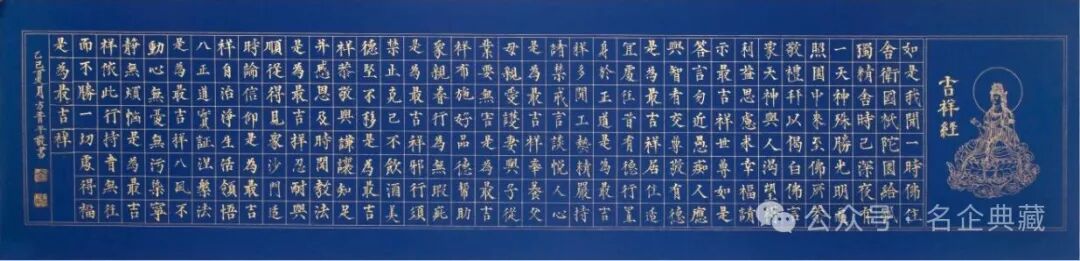 吉祥經
如是我聞一時佛住
舍衛國祇陀園給孤
獨精舍時已深夜有
一天神殊勝光明遍
照園中來至佛所恭
敬禮拜以偈白佛言
眾天神與人渴望得
利益思慮求幸福請
示最吉祥世尊如是
答言勿近愚癡人應
與智者交尊敬有德
是為最吉祥居住適
宜處往昔有德行置
身於正道是為最吉
祥多聞工藝精嚴持
諸禁戒言談悅人心
是為最吉祥奉養父
母親愛護妻與子從
業要無害是為最吉
祥布施好品德幫助
眾親眷行為無瑕疵
是為最吉祥邪行須
禁止克己不飲酒美
德堅不移是為最吉
祥恭敬與謙讓知足
并感恩及時聞教法
是為最吉祥忍耐與
順從得見眾沙門適
時論信仰是為最吉
祥自治淨生活領悟
八正道實證涅槃法
是為最吉祥八風不
動心無憂無污染寧
靜無煩惱是為最吉
祥依此行持者無往
而不勝一切處得福
是為最吉祥
乙巳夏月方晋平敬書
公众号·名企典藏